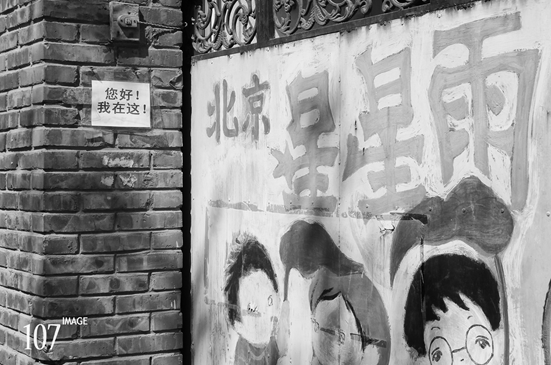 您好！
我在这！
北京
星星雨
107 IMAGE